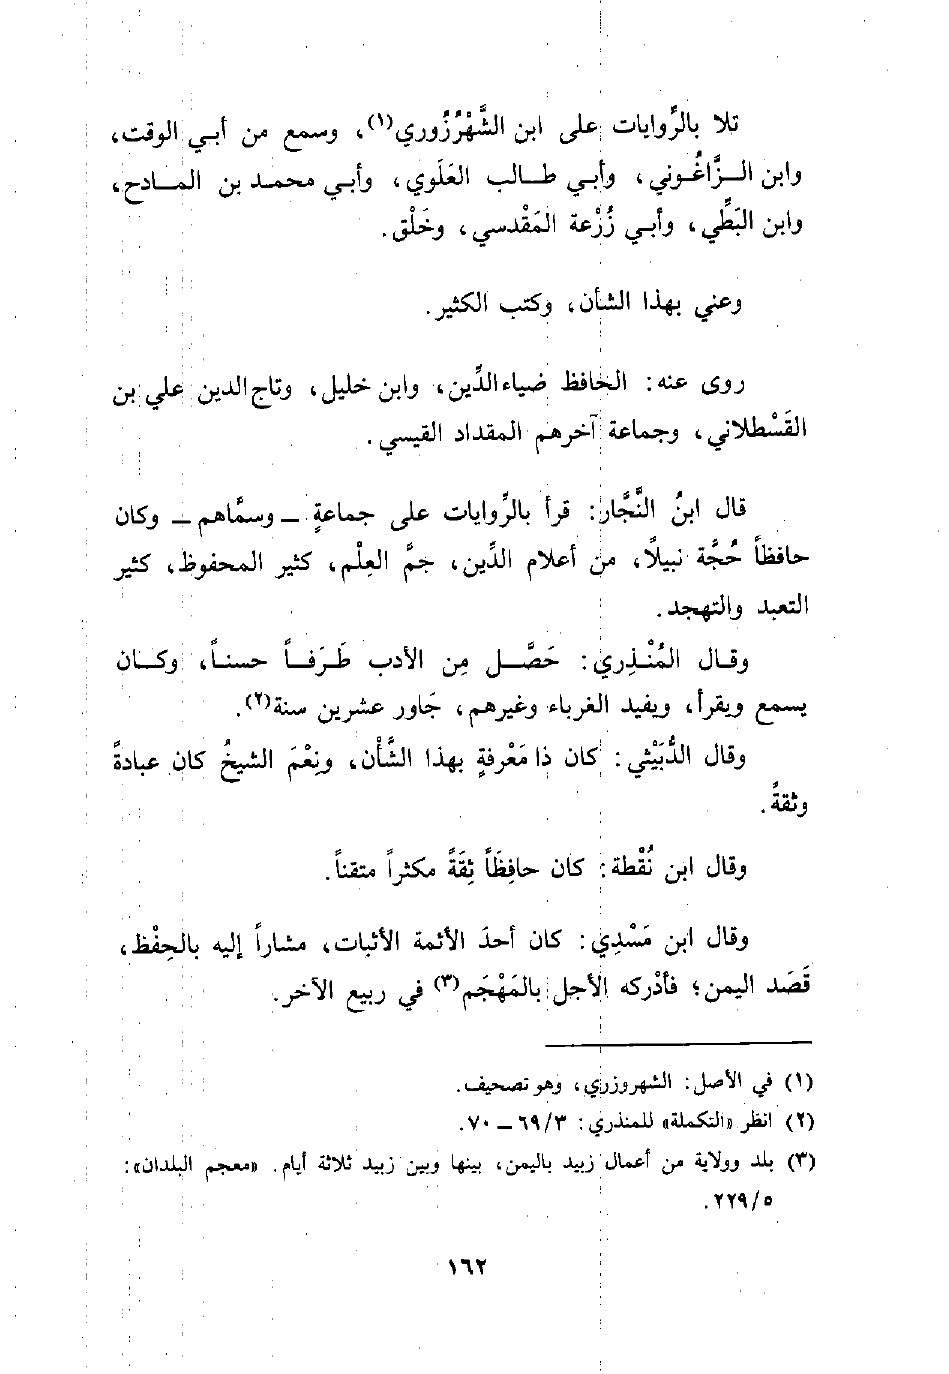 تلا بالرِّوايات على ابن الشَّهْرُزُوري(١)، وسمع من أبي الوقت،
وابن الـزَّاغُـوني، وأبـي طـالب العَلَوي، وأبـي محمـد بن المـادح،
وابن البَطِّي، وأبـي زُرْعة المَقْدسي، وخَلْق.
وعني بهذا الشأن، وكتب الكثير.
روى عنه: الحافظ ضياء الدِّين، وابن خليل، وتاج الدين علي بن
القَسْطلاني، وجماعة آخرهم المقداد القيسي.
قال ابنُ النَّجَّار: قرأ بالرِّوايات على جماعةٍ ـ وسمَّاهم ـ وكان
حافظاً حُجَّة نبيلًا، من أعلام الدِّين، جمَّ العِلْم، كثير المحفوظ، كثير
التعبد والتهجد.
وقـال المُنْذِري: حَصَّـل مِن الأدب طَرَفـاً حسناً، وكـان
يسمع ويقرأ، ويفيد الغرباء وغيرهم، جَاور عشرين سنة(٢).
وقال الدُّبَيْثي: كان ذا مَعْرفةٍ بهذا الشَّأْن، ونِعْمَ الشيخُ كان عبادةً
وثقةً.
وقال ابن نُقْطة: كان حافِظَاً ثِقَةً مكثراً متقناً.
وقال ابن مَسْدِي: كان أحدَ الأئمة الأثبات، مشاراً إليه بالحِفْظ،
قَصَد اليمن؛ فأدْركه الأجل بالمَهْجَم(٣) في ربيع الآخر.
(١) في الأصل: الشهروزري، وهو تصحيف.
(٢) انظر «التكملة» للمنذري: ٦٩/٣ ـ ٧٠.
(٣) بلد وولاية من أعمال زبيد باليمن، بينها وبين زبيد ثلاثة أيام. «معجم البلدان»:
٢٢٩/٥.
١٦٢